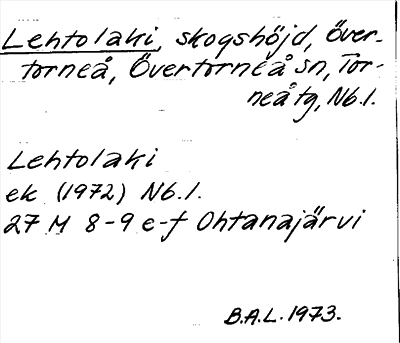 Lehtolaki, skogshöjd, Över-
torneå, Övertorneå sn, Tor-
neå tg, Nb.l.
Lehtolaki
ek (1972) Nb.l.
27 M 8-9 e-f Ohtanajärvi
B.A.L. 1973.